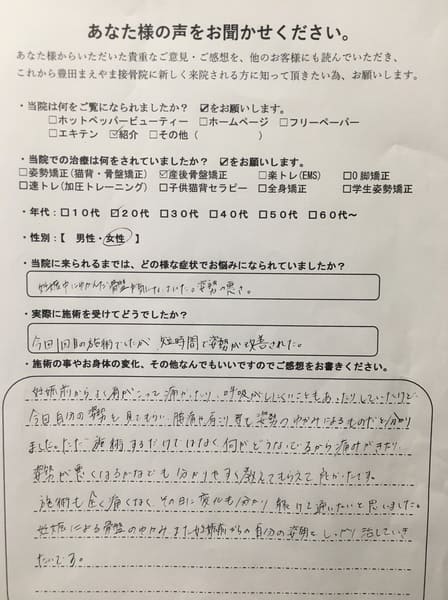 あなた様の声をお聞かせください。
あなた様からいただいた貴重なご意見・ご感想を、他のお客様にも読んでいただき、
これから豊田まえやま接骨院に新しく来院される方に知って頂きたい為、お願いします。
・当院は何をご覧になられましたか？ ☑をお願いします。
□ホットペッパービューティー □ホームページ □フリーペーパー
□エキテン ☑紹介 □その他（ ）
・当院での治療は何をされていましたか？ ☑をお願いします。
□姿勢矯正（猫背・骨盤矯正） ☑産後骨盤矯正 □楽トレ(EMS) □O脚矯正
□速トレ(加圧トレーニング) □子供猫背セラピー □全身矯正 □学生姿勢矯正
・年代：□10代 ☑20代 □30代 □40代 □50代 □60代～
・性別：【 男性・女性 】
・当院に来られるまでは、どの様な症状でお悩みになられていましたか？
妊娠中にゆがんだ骨盤が気になっていた。姿勢の悪さ。
・実際に施術を受けてどうでしたか？
今回1回目の施術でしたが 短時間で姿勢が改善された。
・施術の事やお身体の変化、その他なんでもいいですのでご感想をお書きください。
妊娠前からよく肩がこって痛かったり、呼吸がしにくいこともあったりしていたけど
今日自分の姿勢を見てもらい 腰痛や肩こり等も姿勢のゆがみによるものだと分かり
ました。ただ 施術するだけではなく何がどうなっているから痛みがきたり、
姿勢が悪くなるかなども分かりやすく教えてもらえて良かったです。
施術も全く痛くなく その日に変化も分かり 続けて通いたいと思いました。
妊娠による骨盤のゆがみ、また妊娠前からの自分の姿勢をしっかり治していき
たいです。